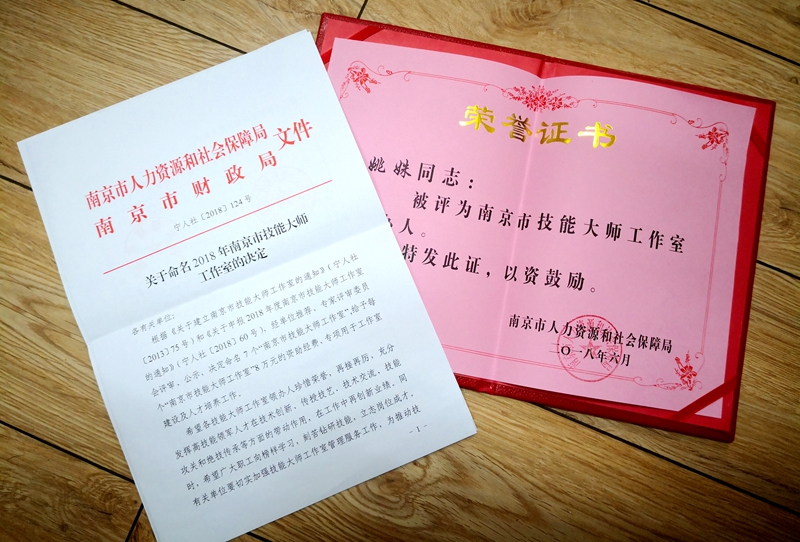 南京市人力资源和社会保障局
南京市财政局
文件
宁人社〔2018〕124号
关于命名2018年南京市技能大师
工作室的决定
各有关单位：
根据《关于建立南京市技能大师工作室的通知》（宁人社
〔2013〕75号）和《关于申报2018年度南京市技能大师工作室
的通知》（宁人社〔2018〕60号），经单位推荐、专家评审委员
会评审、公示，决定命名7个“南京市技能大师工作室”，给予每
个“南京市技能大师工作室”8万元的资助经费，专项用于工作室
建设及人才培养工作。
希望各技能大师工作室领办人珍惜荣誉，再接再厉，充分
发挥高技能领军人才在技术创新、传授技艺、技术交流、技能
攻关和绝技传承等方面的带动作用，在工作中再创新业绩，同
时，希望广大职工向榜样学习，刻苦钻研技能，立志岗位成才，
有关单位要切实加强技能大师工作室管理服务工作，为推动技
- 1 -
荣誉证书
姚姝同志：
被评为南京市技能大师工作室
人。
特发此证，以资鼓励。
南京市人力资源和社会保障局
二〇一八年六月